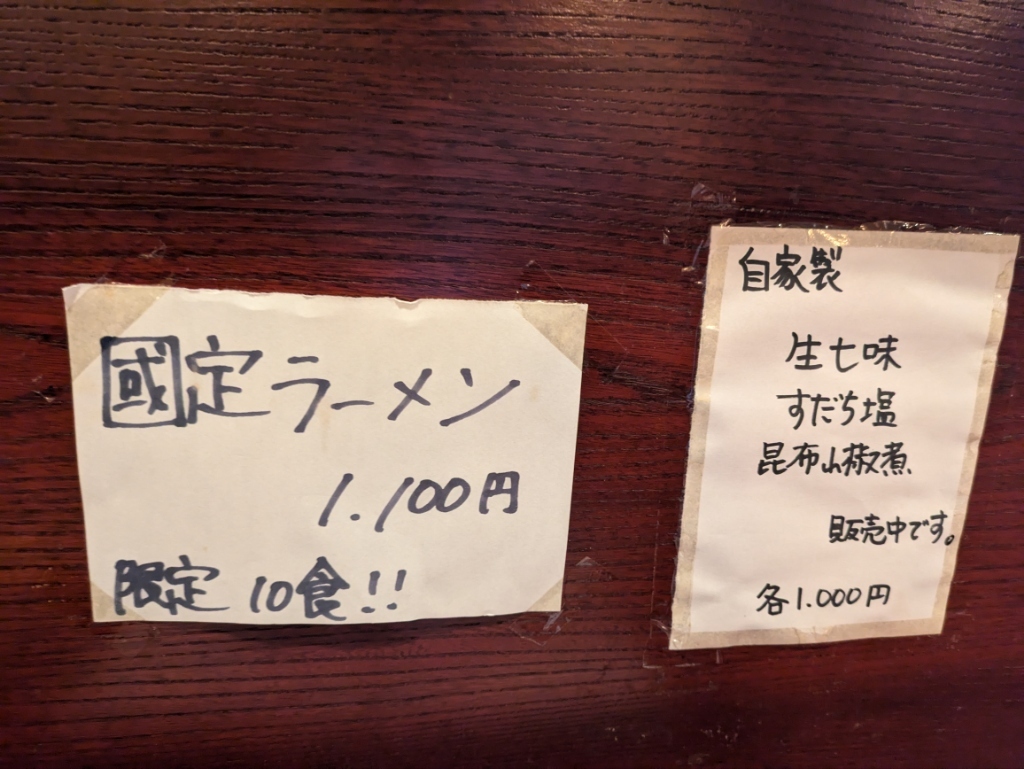 國定ラーメン
1.100円
限定 10食!!
自家製
生七味
すだち塩
昆布山椒煮
販売中です。
各1.000円